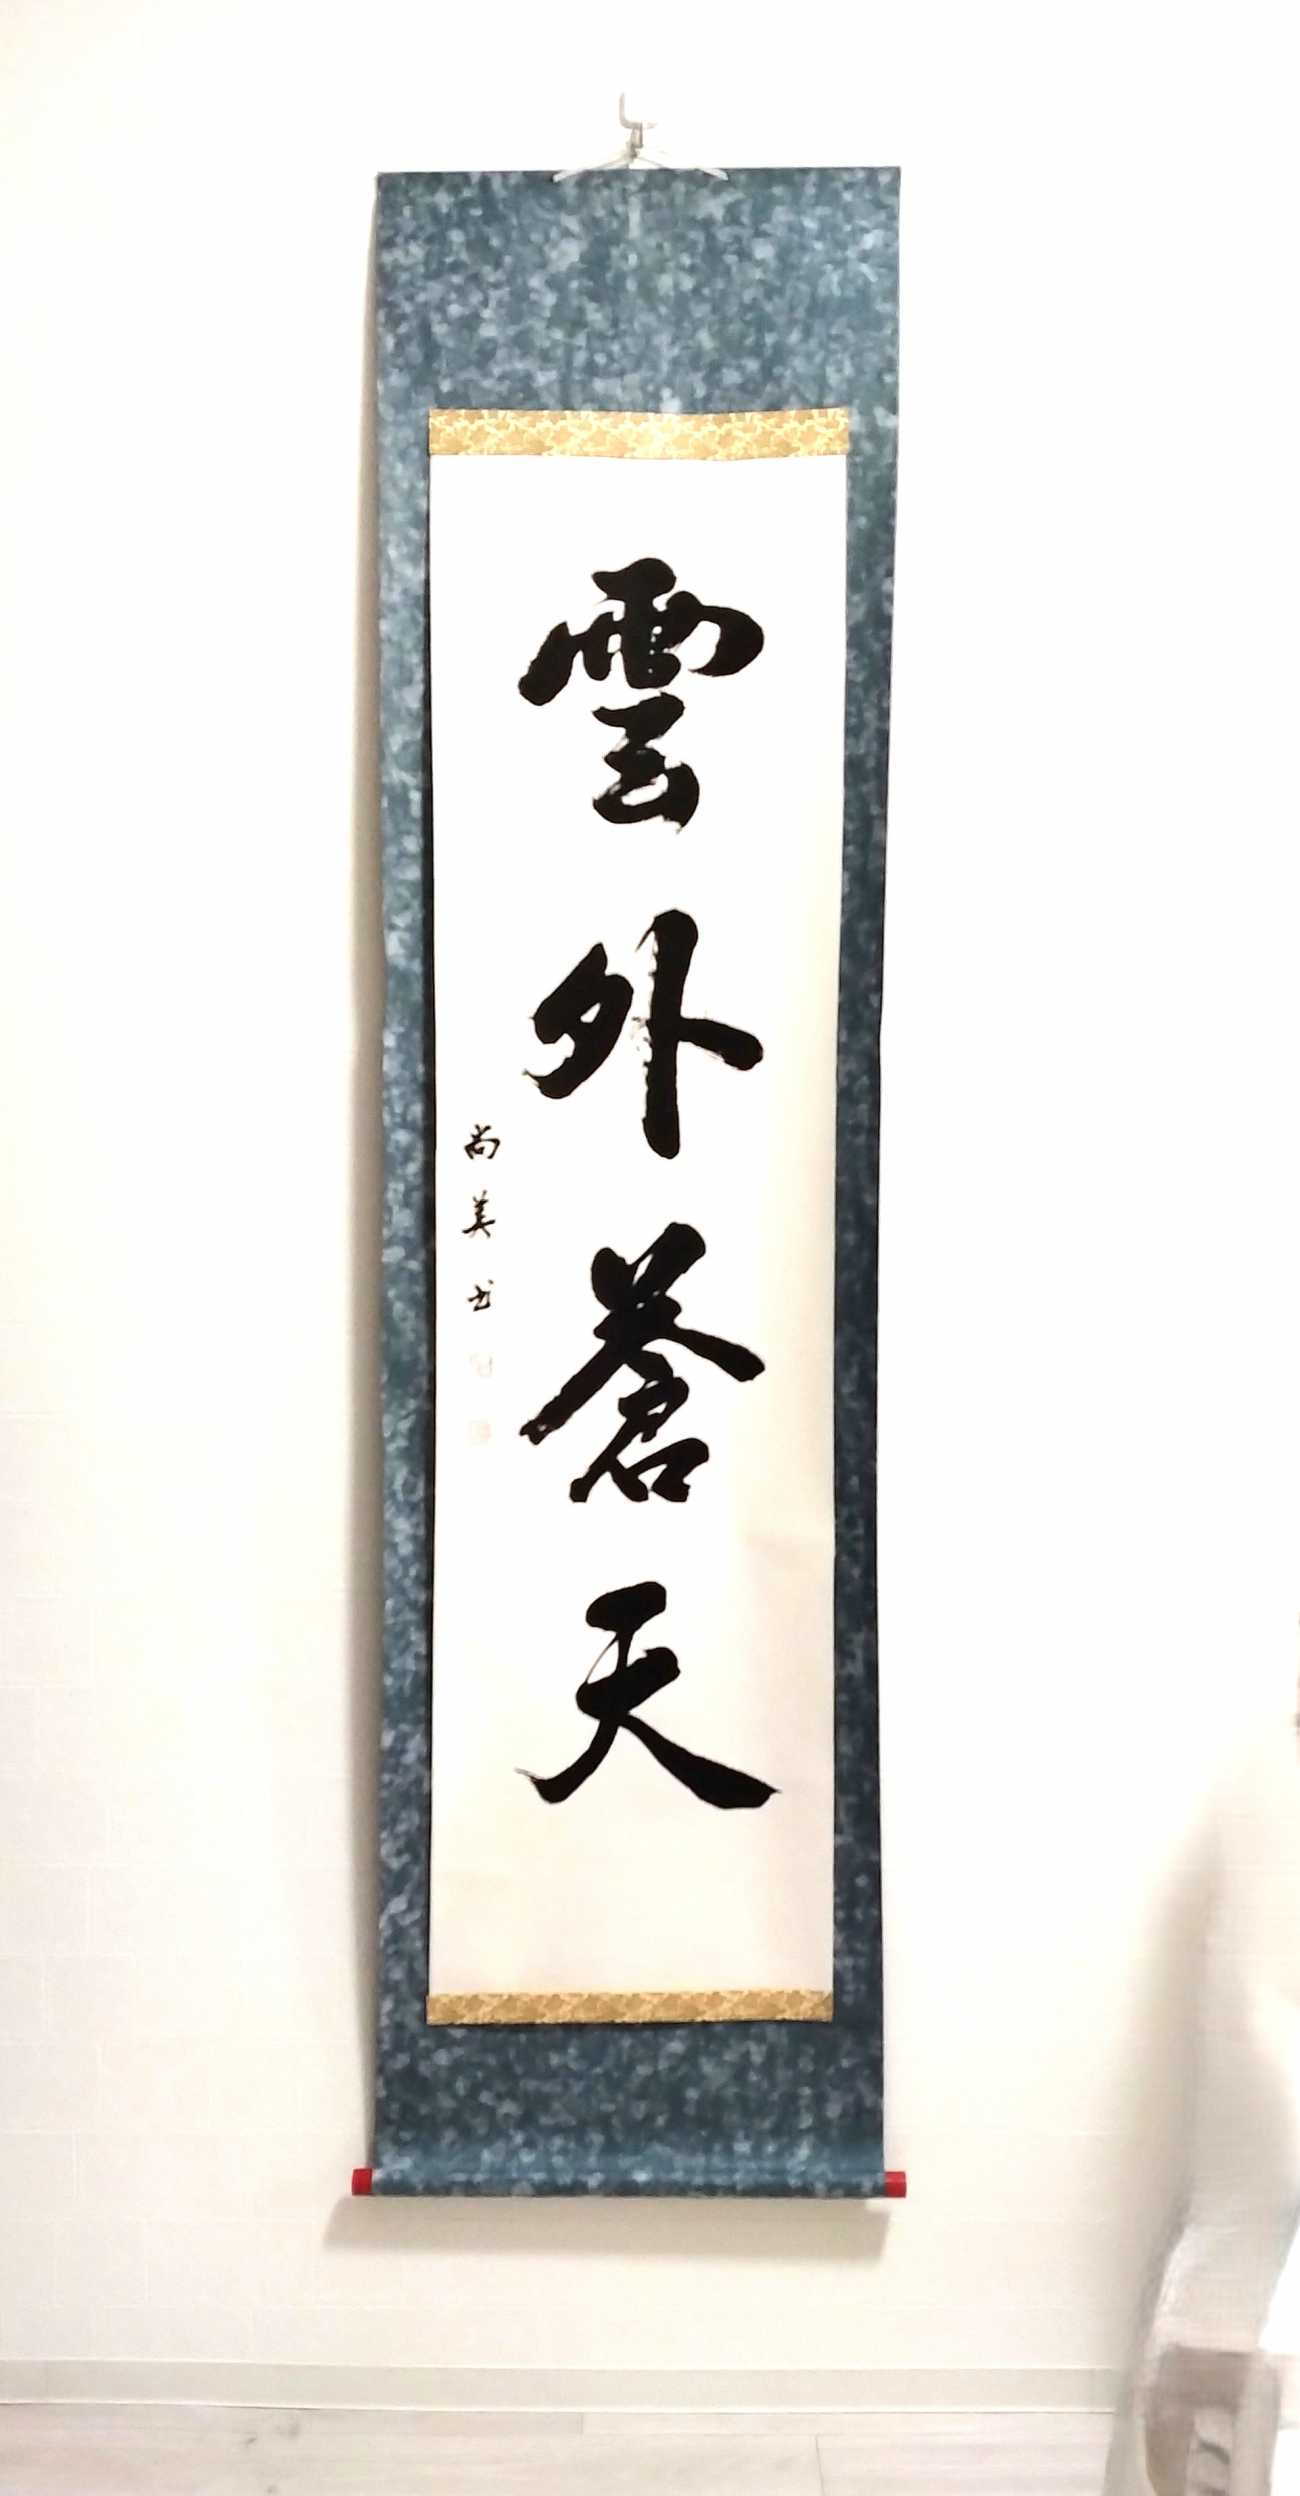 雲外蒼天
尚美书